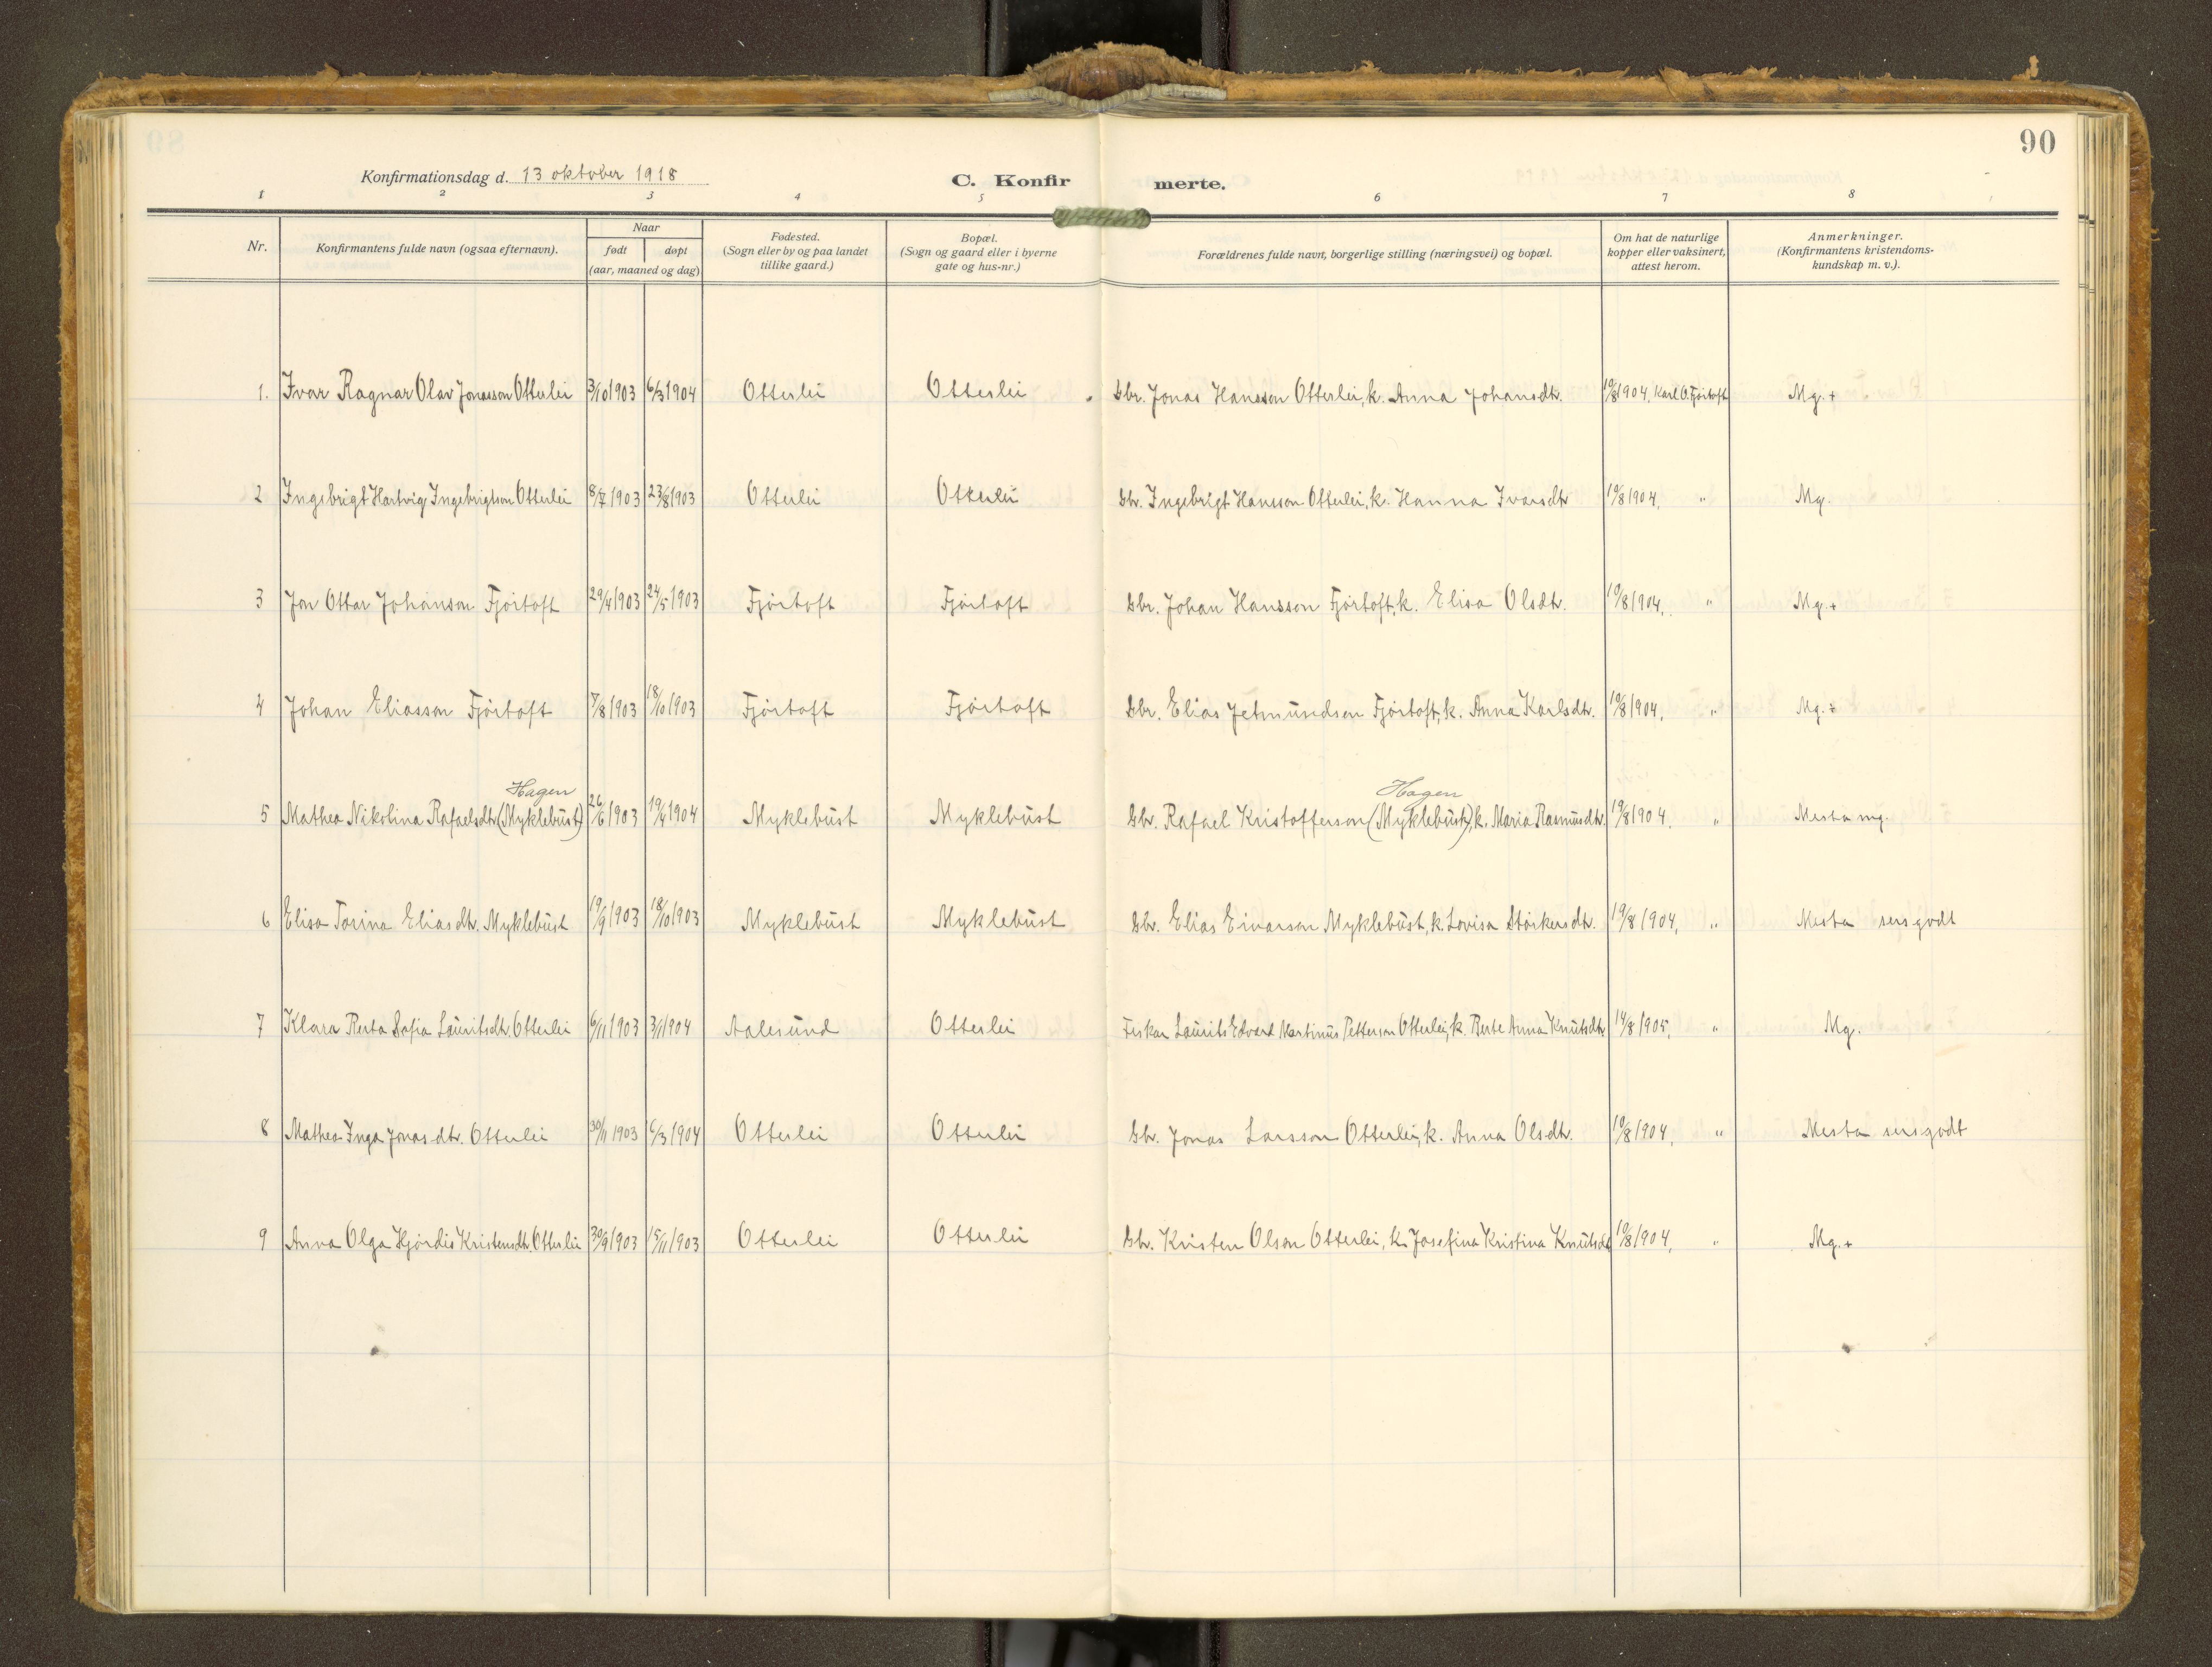 90
Konfirmationsdag d. 13 oktober 1918
C. Konfirmerte.
1 2 3 4 5 6 7 8
Nr.
Konfirmantens fulde navn (ogsaa efternavn).
Naar
født døpt
(aar, maaned og dag)
Fødested.
(Sogn eller by og paa landet
tillike gaard.)
Bopæl.
(Sogn og gaard eller i byerne
gate og hus-nr.)
Forældrenes fulde navn, borgerlige stilling (næringsvei) og bopæl.
Om hat de naturlige
kopper eller vaksinert,
attest herom.
Anmerkninger.
(Konfirmantens kristendoms-
kundskap m. v.).
1. Ivar Ragnar Olav Jonasson Otterlei 3/10 1903 6/3 1904 Otterlei Otterlei Gbr. Jonas Hansson Otterlei, k. Anna Johansdtr. 19/8 1904, Karl O. Fjörtoft Mg.+
2 Ingebrigt Hartvig Ingebrigtson Otterlei 8/7 1903 23/8 1903 Otterlei Otterlei Gbr. Ingebrigt Hansson Otterlei, k. Hanna Ivarsdtr 19/8 1904, " Mg.
3 Jon Ottar Johanson Fjörtoft 29/4 1903 24/5 1903 Fjörtoft Fjörtoft Gbr. Johan Hansson Fjörtoft, k. Elisa Olsdtr. 19/8 1904, " Mg.+
4 Johan Eliasson Fjörtoft 7/8 1903 18/10 1903 Fjörtoft Fjörtoft Gbr. Elias Jetmundson Fjörtoft, k. Anna Karlsdtr. 19/8 1904, " Mg.÷
Hagen Hagen
5 Mathea Nikolina Rafaelsdtr (Myklebust) 26/6 1903 19/4 1904 Myklebust Myklebust Gbr. Rafael Kristofferson (Myklebust), k. Maria Rasmusdtr. 19/8 1904, " Mesta mg.
6 Elisa Torina Eliasdtr. Myklebust 19/9 1903 18/10 1903 Myklebust Myklebust Gbr. Elias Einarson Myklebust, k. Lovisa Störkersdtr. 19/8 1904, " Mesta sers godt
7 Klara Berta Sofia Lauritsdtr Otterlei 6/11 1903 3/1 1904 Aalesund Otterlei Fiskar Laurits Edvard Martinus Petterson Otterlei, k. Berte Anna Knutsdtr 14/8 1905, " Mg.
8 Mathea Inga Jonasdtr. Otterlei 30/11 1903 6/3 1904 Otterlei Otterlei Gbr. Jonas Larsson Otterlei, k. Anna Olsdtr. 19/8 1904, " Mesta sers godt
9 Anna Olga Hjördis Kristensdtr. Otterlei 30/9 1903 15/11 1903 Otterlei Otterlei Gbr. Kristen Olson Otterlei, k. Josefina Kristina Knutsdt 19/8 1904, " Mg.+